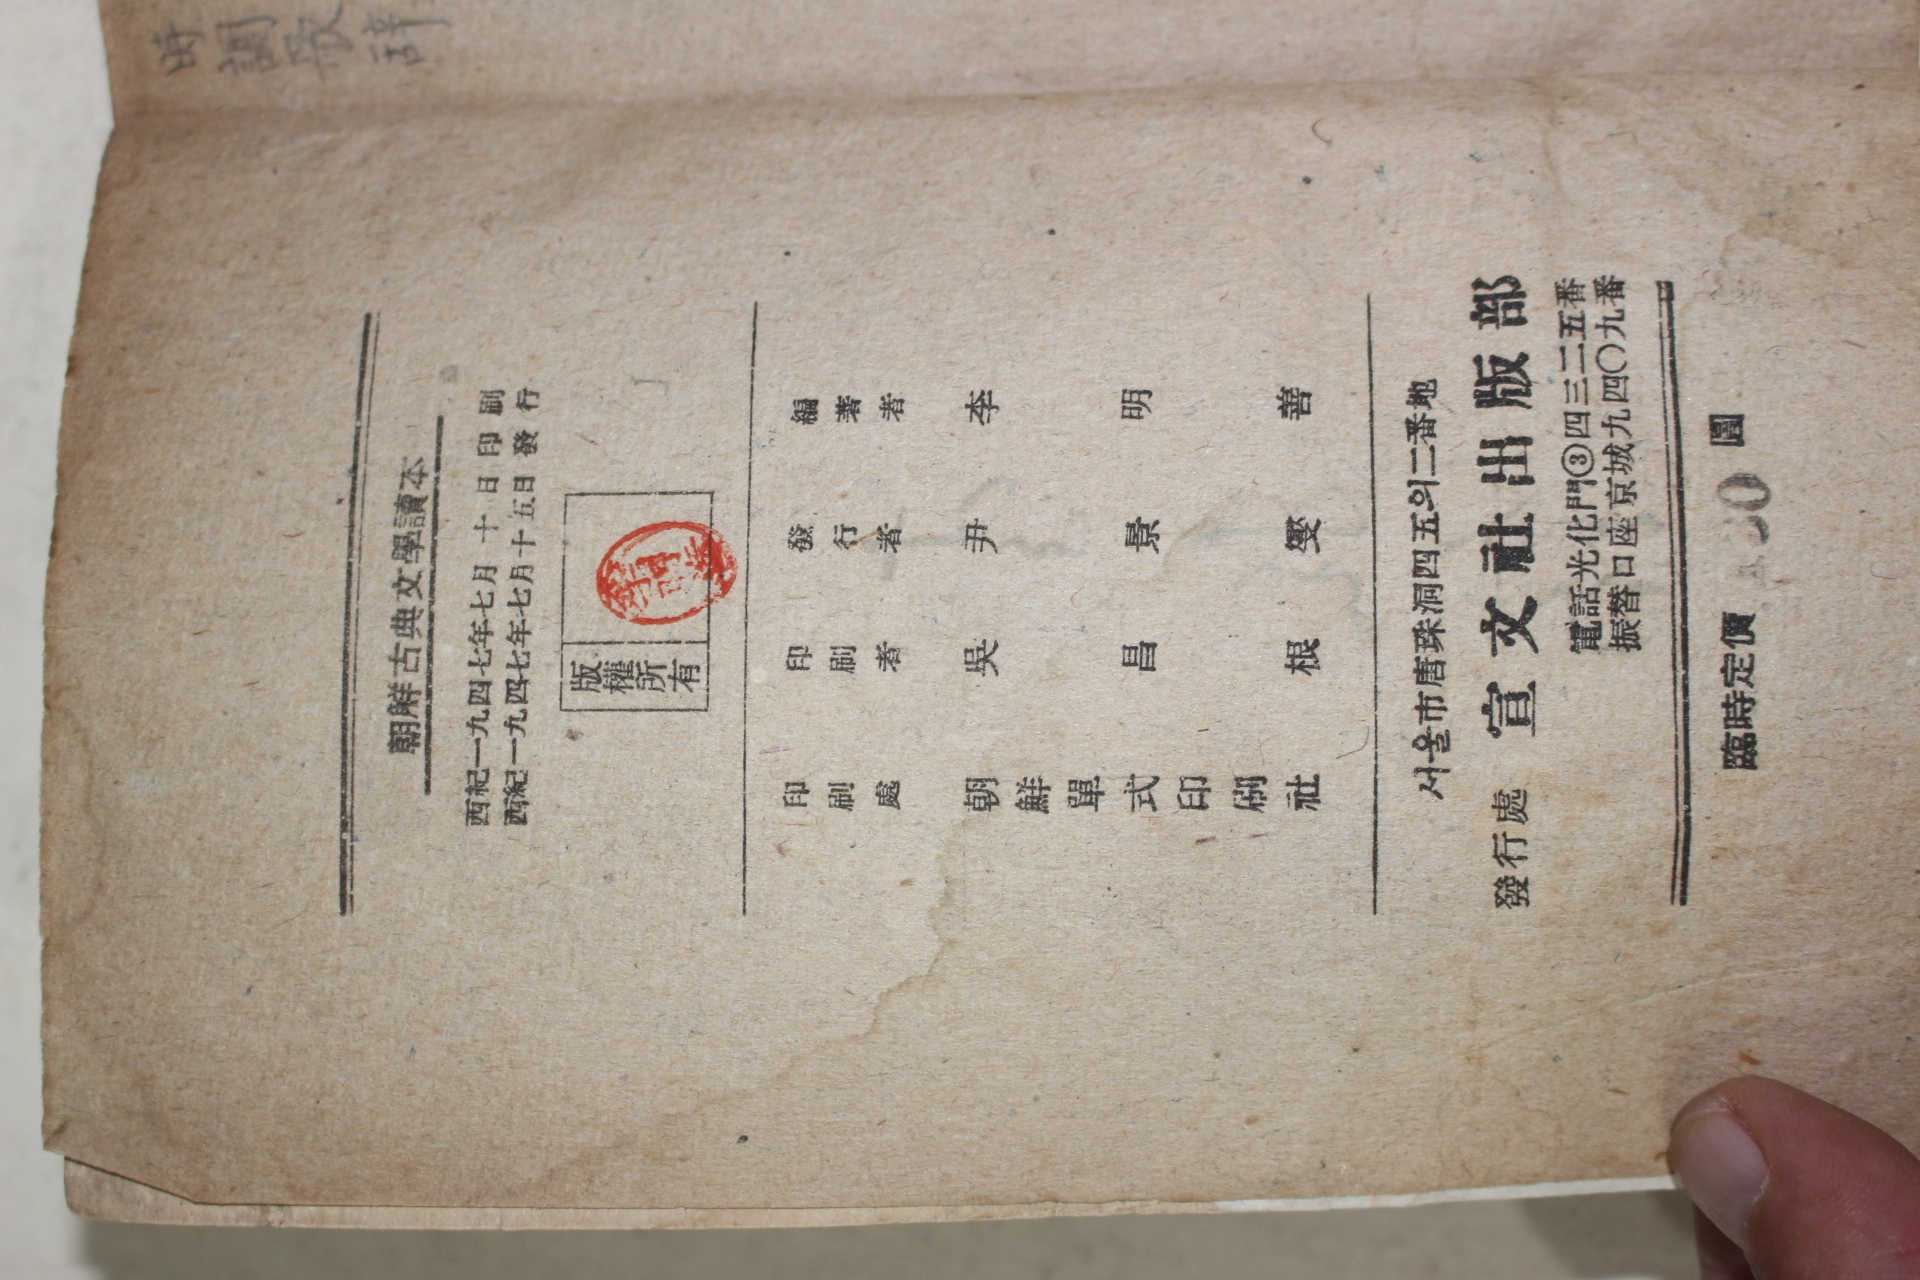 時調歌辞
朝鮮古典文學讀本
西紀一九四七年七月 十 日 印 刷
西紀一九四七年七月十五日 發 行
版權所有
編著者 李明善
發行者 尹景燮
印刷者 吳昌根
印刷處 朝鮮單式印刷社
서울市唐珠洞四五의二番地
發行處 宣文社出版部
電話光化門③四三二五番
振替口座京城九四〇九番
臨時定價 圓